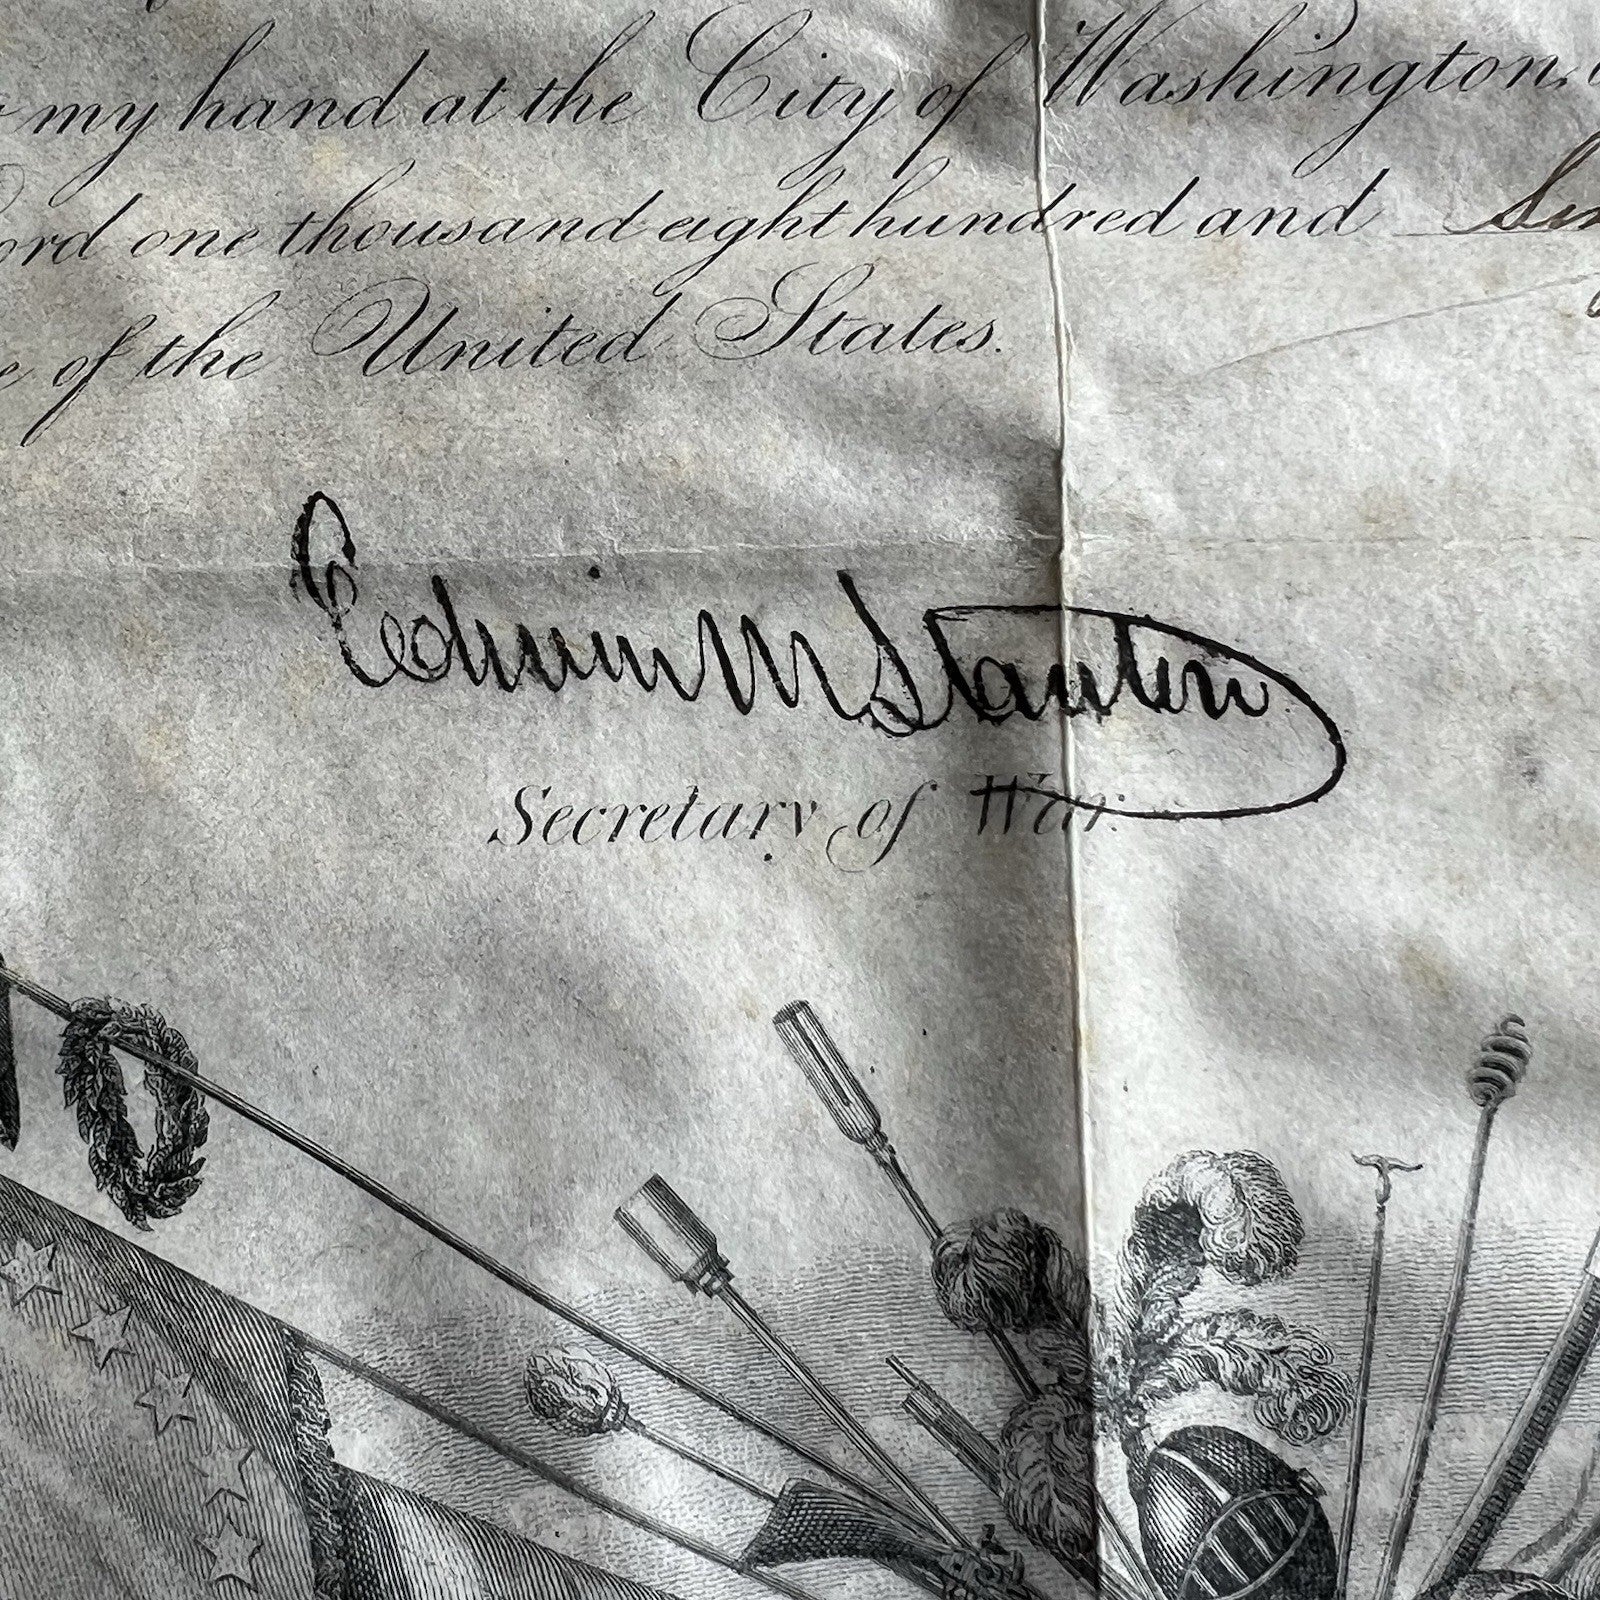 my hand at the City of Washington,
one thousand eight hundred and
of the United States.
Edwin M Stanton
Secretary of War.